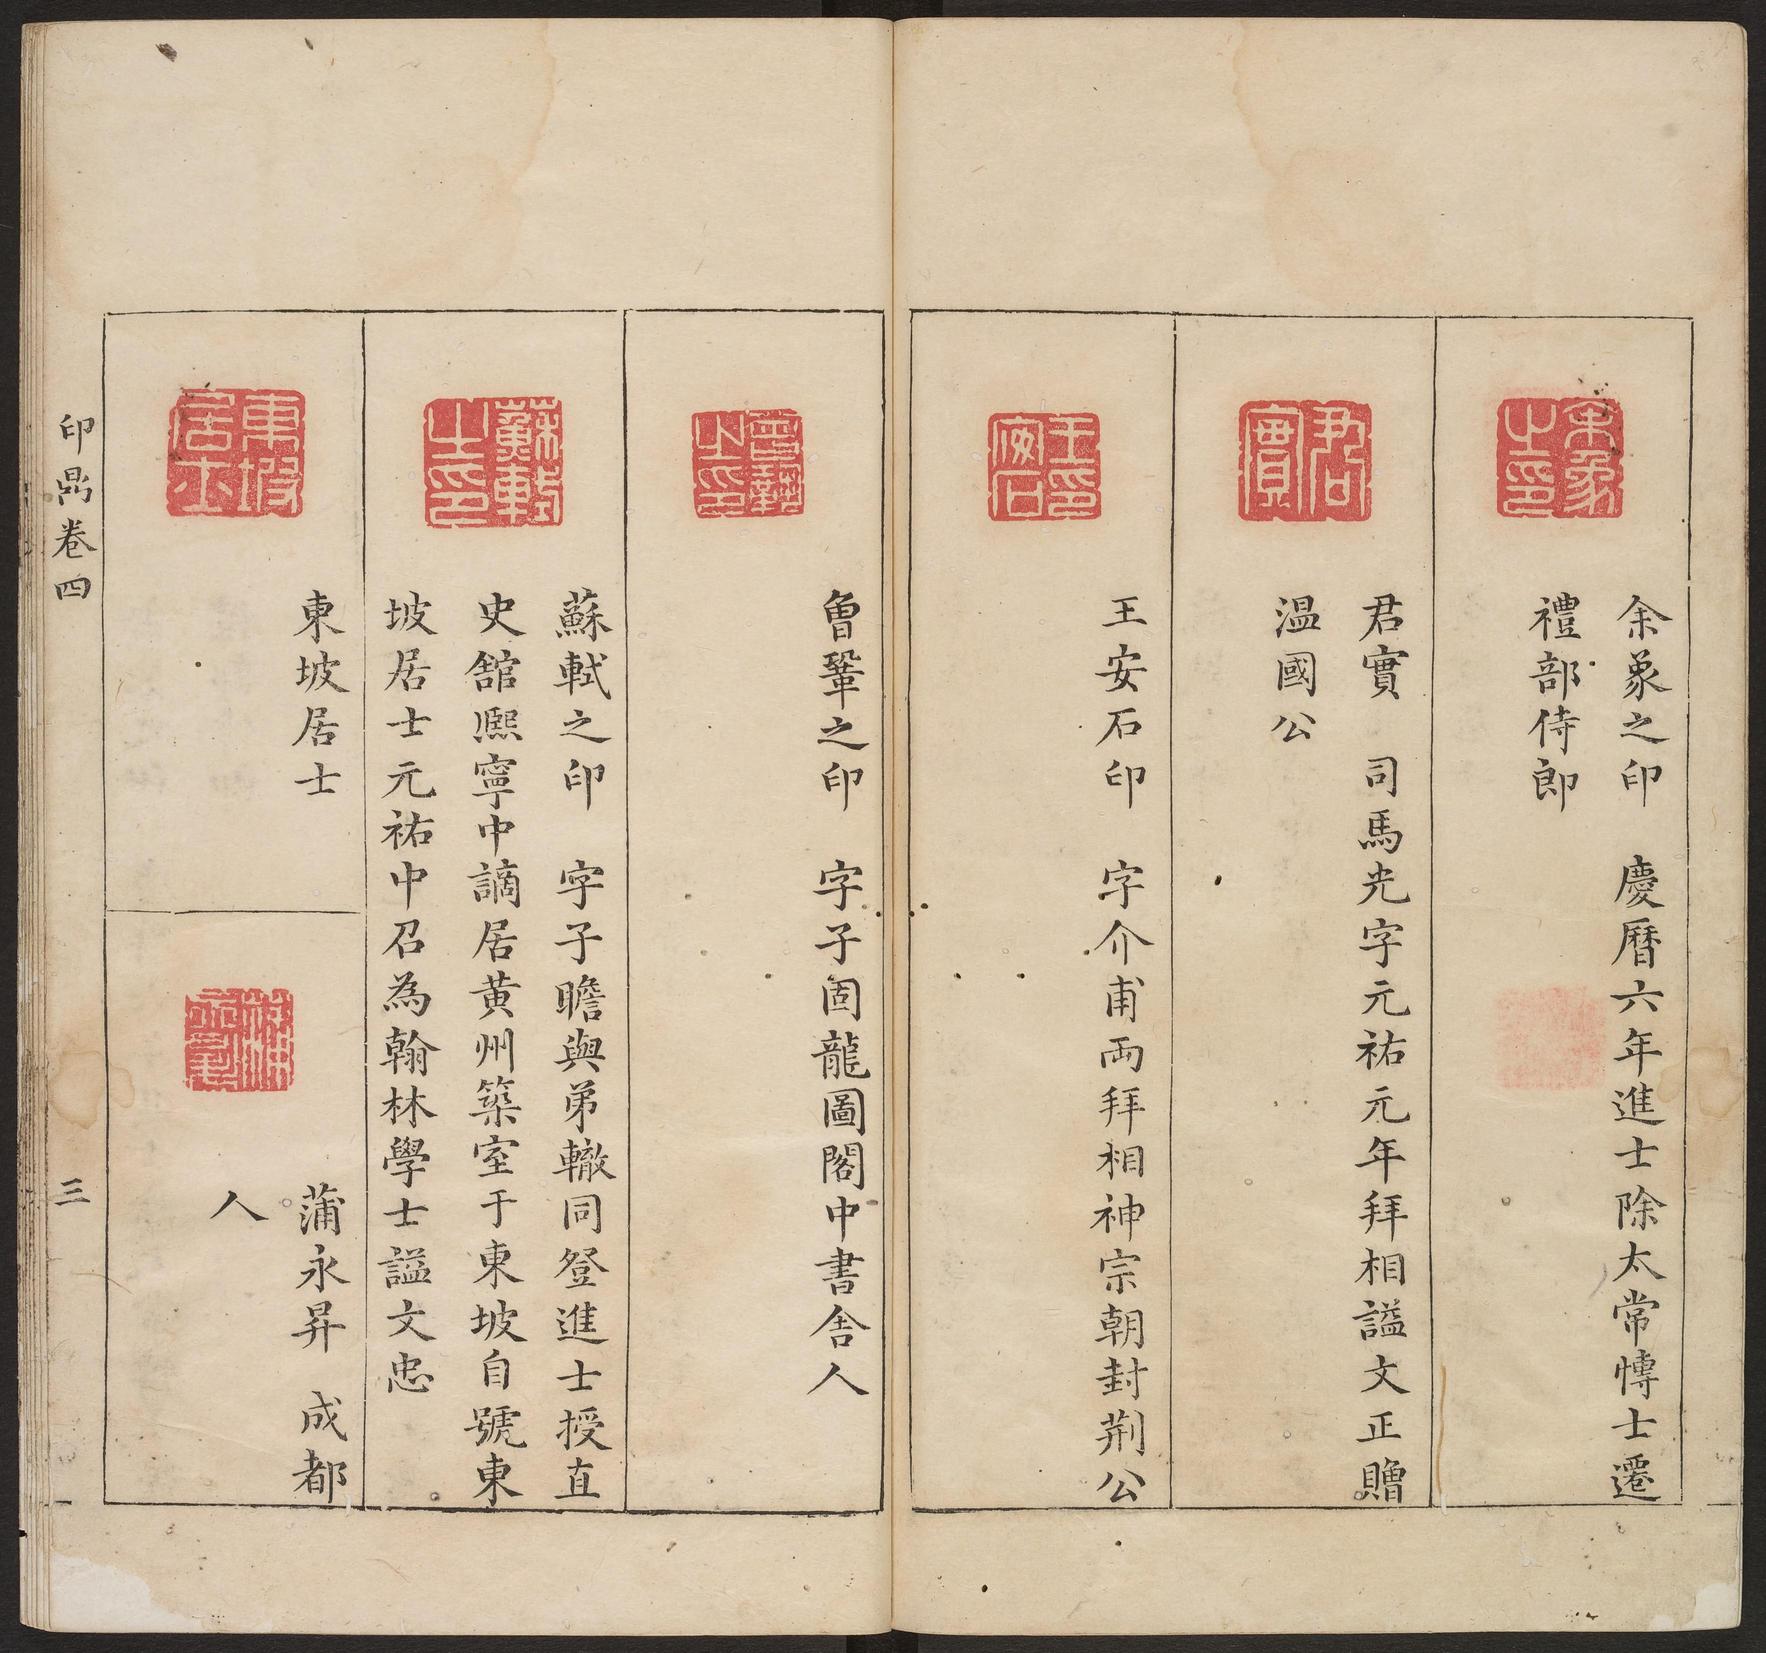 余象之印
余象之印　慶曆六年進士除太常博士遷
禮部侍郎
君實
君實　司馬光字元祐元年拜相謚文正贈
溫國公
王安石印
王安石印　字介甫兩拜相神宗朝封荆公
曾鞏之印
曾鞏之印　字子固龍圖閣中書舍人
蘇軾之印
蘇軾之印　字子瞻與弟轍同登進士授直
史館熙寧中謫居黃州築室于東坡自號東
坡居士元祐中召為翰林學士謚文忠
東坡居士
東坡居士
蒲永昇　成都
人
印鼎卷四
三